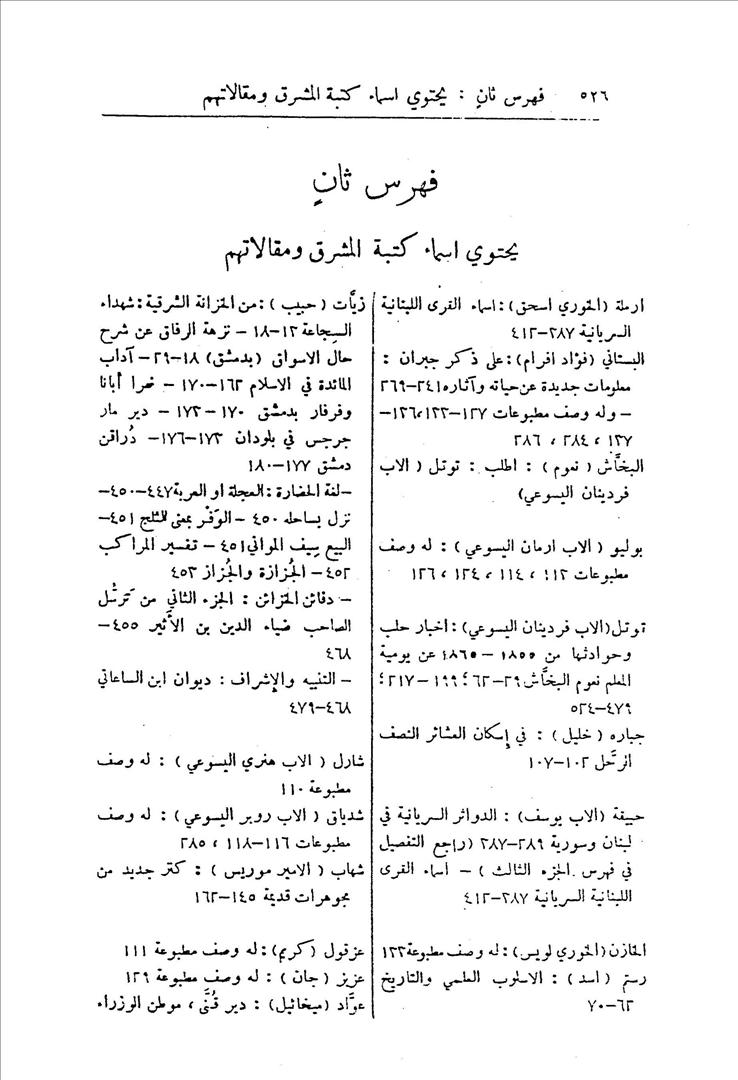 ٥٢٦ فهرس ثانٍ : يحتوي اسماء كتبة المشرق ومقالاتهم
فهرس ثانٍ
يحتوي اسماء كتبة المشرق ومقالاتهم
ارملة (الخوري اسحق): اسماء القرى اللبنانية
السريانية ٢٨٧-٤١٢
البستاني (فؤاد افرام): على ذكر جبران :
معلومات جديدة عن حياته وآثاره ٢٤١-٢٦٩
- وله وصف مطبوعات ١٢٧-١٢٢،١٢٦-
١٢٧ ، ٢٨٤ ، ٢٨٦
البخَّاش ( نعوم ) : اطلب : توتل ( الاب
فردينان اليسوعي)
بوليو ( الاب ارمان اليسوعي ) : له وصف
مطبوعات ١١٢ ، ١١٤ ، ١٢٤ ، ١٢٦
توتل (الاب فردينان اليسوعي) : اخبار حلب
وحوادثها من ١٨٥٥ - ١٨٦٥ عن يومية
المعلم نعوم البخَّاش ٢٩-٦٢ ؛ ١٩٩-٢١٧ ؛
٤٧٩-٥٢٤
جباره ( خليل ) : في إسكان العشائر النصف
الرحَّل ١٠٢-١٠٧
حبيقة (الاب يوسف) : الدوائر السريانية في
لبنان وسورية ٢٨٩-٢٨٧ (راجع التفصيل
في فهرس الجزء الثالث ) - اسماء القرى
اللبنانية السريانية ٢٨٧-٤١٢
الخازن (الخوري لويس): له وصف مطبوعة ١٢٢
رستم ( اسد ) : الاسلوب العلمي والتاريخ
٦٢-٧٠
زيَّات ( حبيب ) : من الخزانة الشرقية : شهداء
السجاعة ١٢-١٨ - نزهة الرفاق عن شرح
حال الاسواق (بدمشق) ١٨-٢٩ - آداب
المائدة في الاسلام ١٦٢-١٧٠ - نهرا أبانا
وفرفار بدمشق ١٧٠-١٧٢ - دير مار
جرجس في بلودان ١٧٢-١٧٦ - دُراقن
دمشق ١٧٧-١٨٠
- لغة الحضارة : العجلة او العربة ٤٤٧-٤٥٠ -
نزل بساحله ٤٥٠ - الوَفْر بمعنى الثلج ٤٥١ -
البيع سِيف المواني ٤٥١ - تفسير المراكب
٤٥٢ - الجُزازة والجُزاز ٤٥٣
- دفائن الخزائن : الجزء الثاني من ترسُّل
الصاحب ضياء الدين بن الأثير ٤٥٥-
٤٦٨
- التنبيه والإشراف : ديوان ابن الساعاتي
٤٦٨-٤٧٩
شارل ( الاب هنري اليسوعي ) : له وصف
مطبوعة ١١٠
شدياق ( الاب روبر اليسوعي ) : له وصف
مطبوعات ١١٦-١١٨ ، ٢٨٥
شهاب ( الامير موريس ) : كنز جديد من
مجوهرات قديمة ١٤٥-١٦٢
عزقول (كريم): له وصف مطبوعة ١١١
عزيز ( جان ) : له وصف مطبوعة ١٢٩
عوَّاد (ميخائيل) : دير قُنَّى ، موطن الوزراء